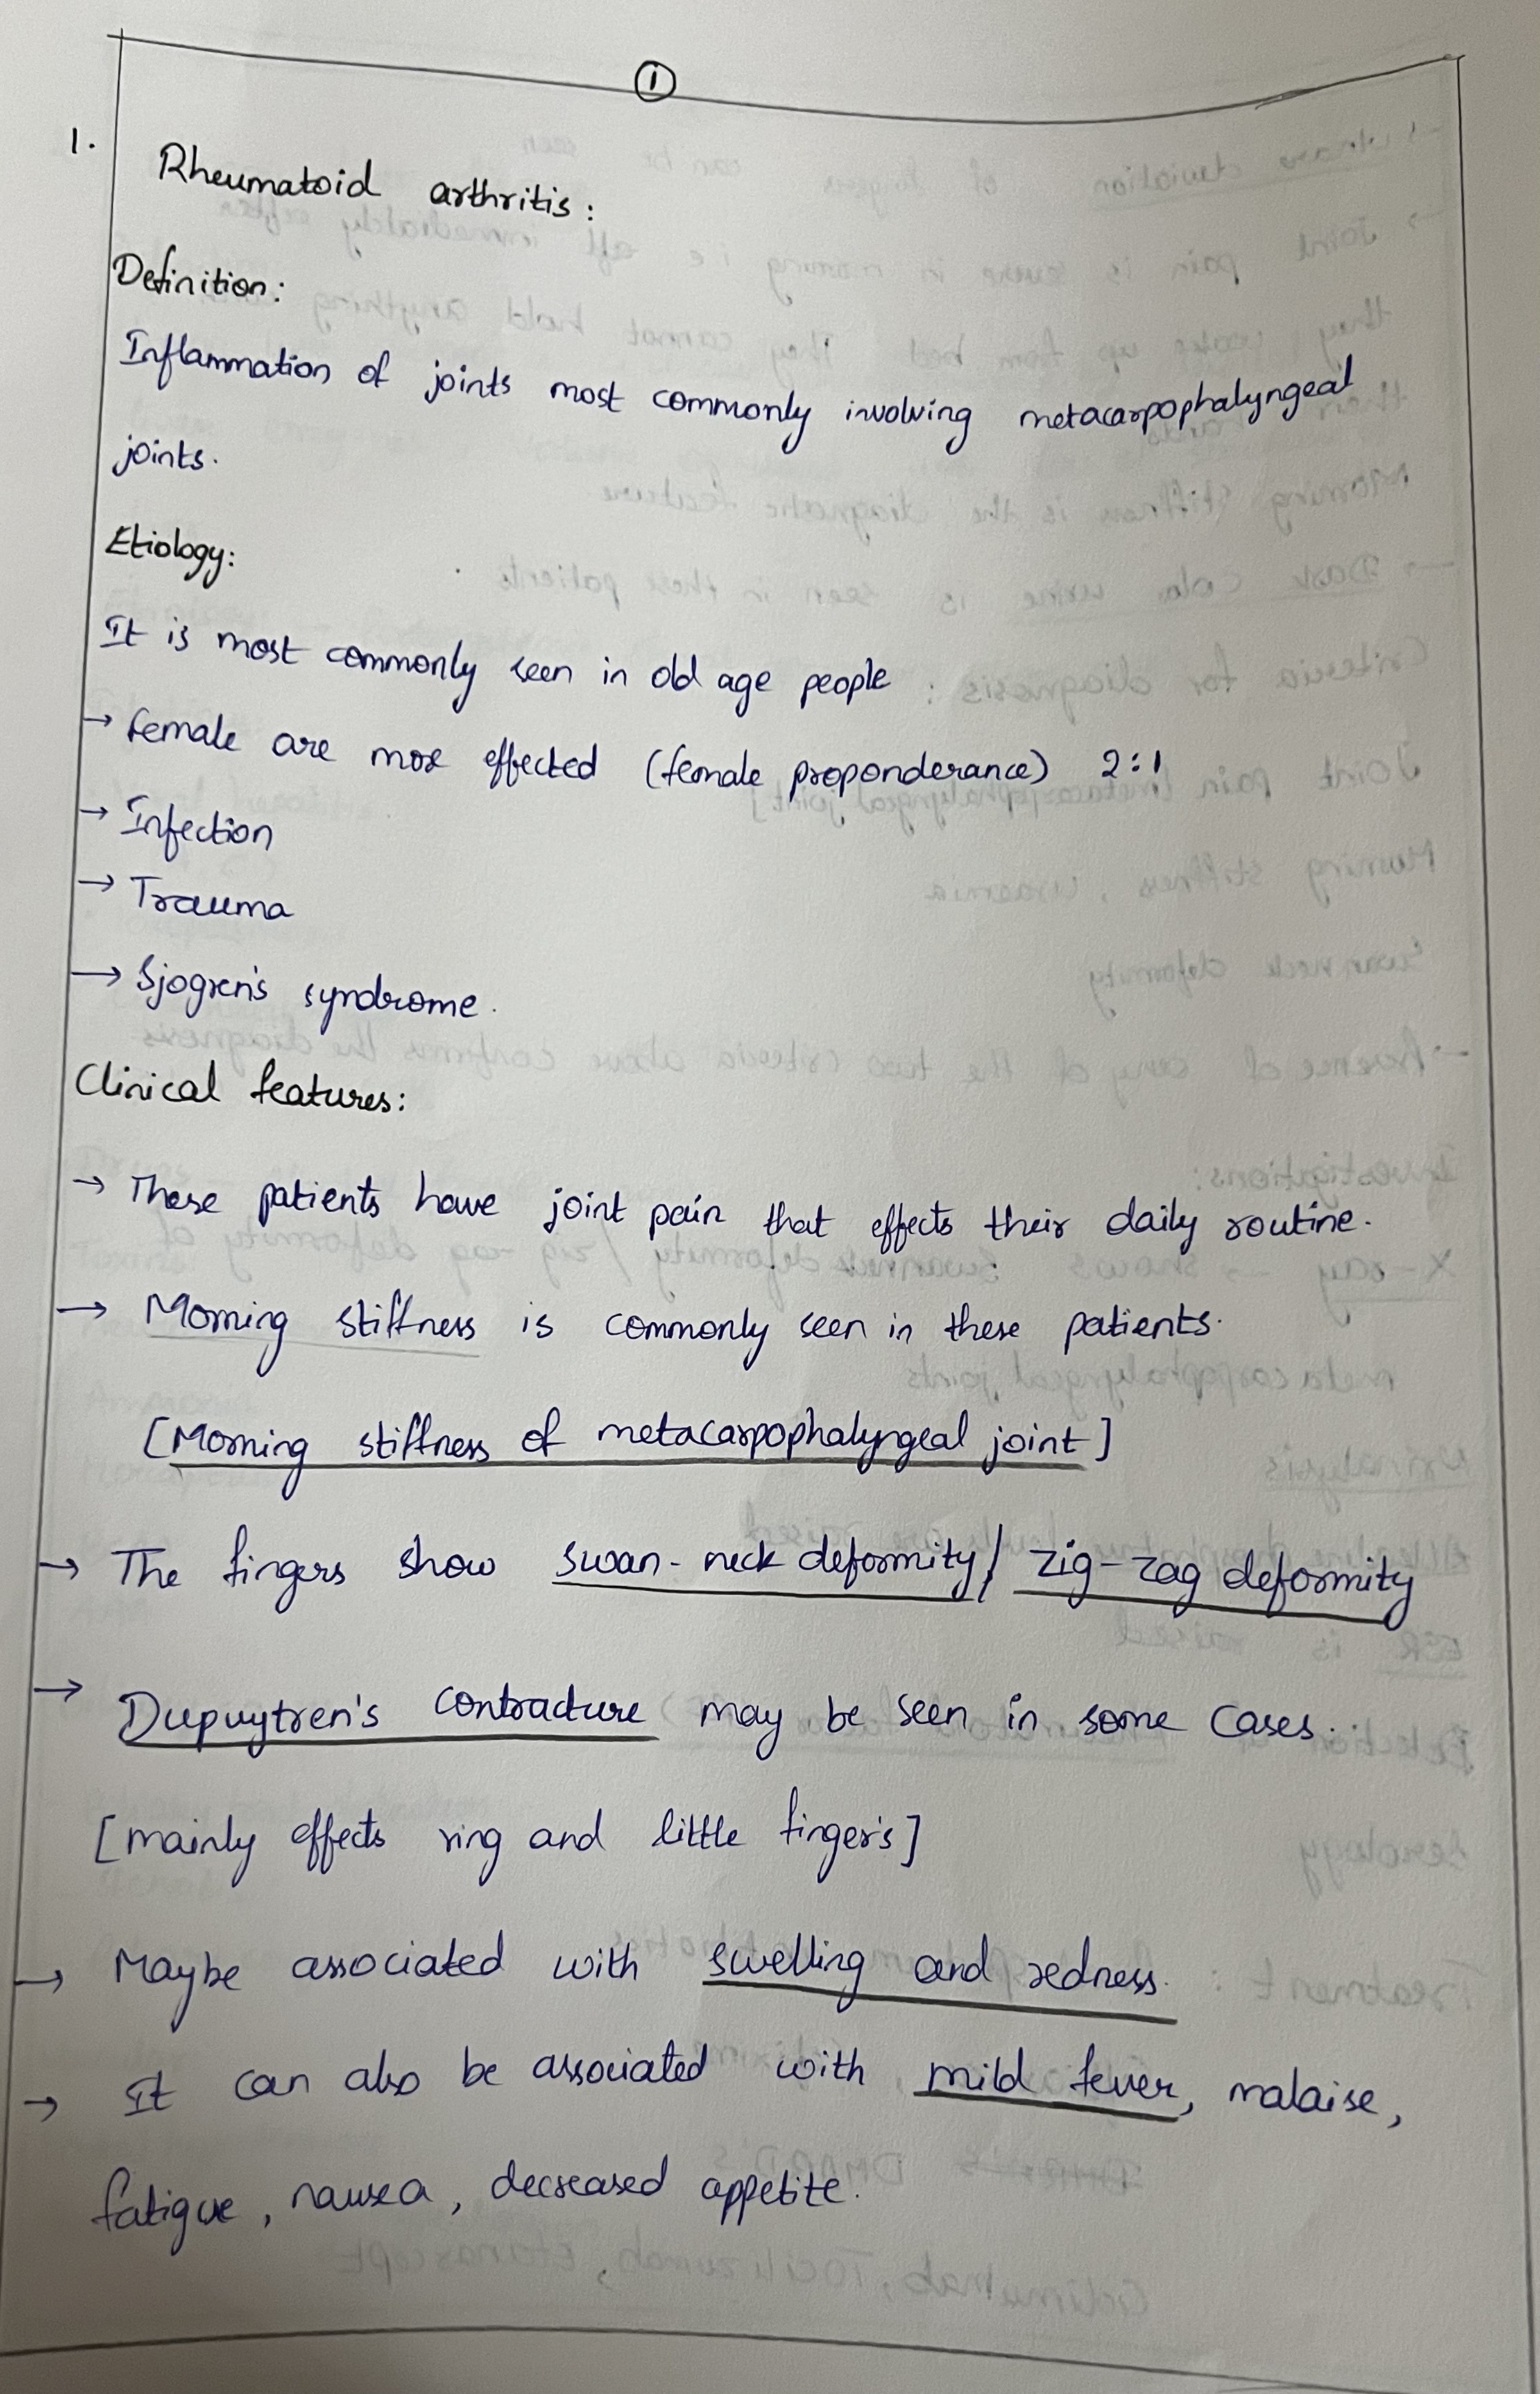 ①
1. Rheumatoid arthritis:
Definition:
Inflammation of joints most commonly involving metacarpophalyngeal
joints.
Etiology:
It is most commonly seen in old age people
→ Female are more effected (female proponderance) 2:1
→ Infection
→ Trauma
→ Sjogren's syndrome.
Clinical features:
→ These patients have joint pain that effects their daily routine.
→ Morning stiffness is commonly seen in these patients.
[Morning stiffness of metacarpophalyngeal joint]
→ The fingers show swan-neck deformity / zig-zag deformity
→ Dupuytren's contracture may be seen in some cases.
[mainly effects ring and little finger's]
→ Maybe associated with swelling and redness.
→ It can also be associated with mild fever, malaise,
fatigue, nausea, decreased appetite.